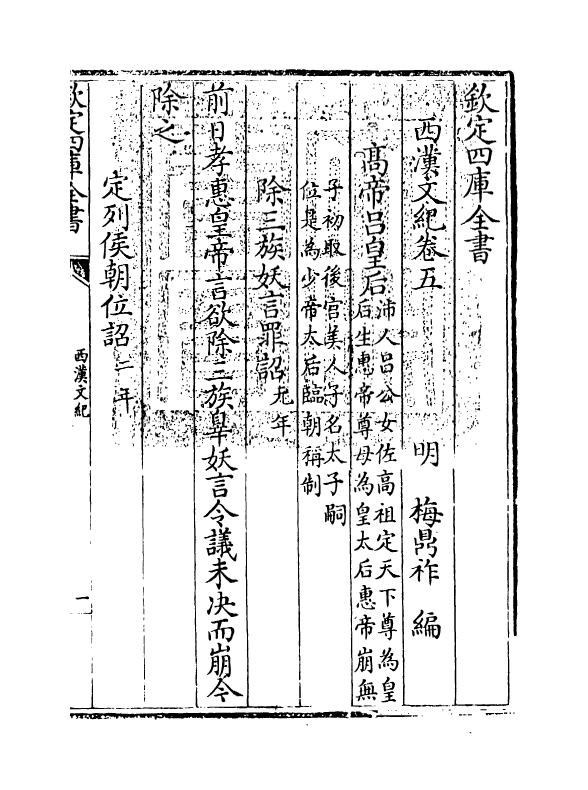 欽定四庫全書
西漢文紀卷五　　　明　梅鼎祚　編
高帝呂皇后沛人呂公女佐高祖定天下尊為皇
后生惠帝尊母為皇太后惠帝崩無
子初取後宮美人子名太子嗣
位是為少帝太后臨朝稱制
除三族妖言罪詔元年
前日孝惠皇帝言欲除三族辠妖言令議未決而崩今
除之
定列侯朝位詔二年
欽定四庫全書
西漢文紀
一